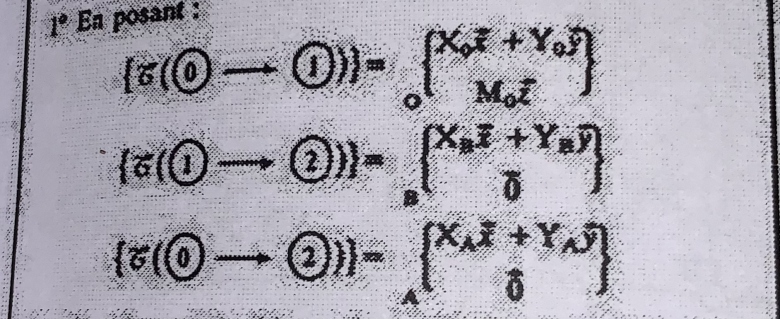 1° En posant :
{𝒢(⓪ → ①)} = O { X₀x⃗ + Y₀y⃗ / M₀z⃗ }
{𝒢(① → ②)} = B { X_B x⃗ + Y_B y⃗ / 0⃗ }
{𝒢(⓪ → ②)} = A { X_A x⃗ + Y_A y⃗ / 0⃗ }